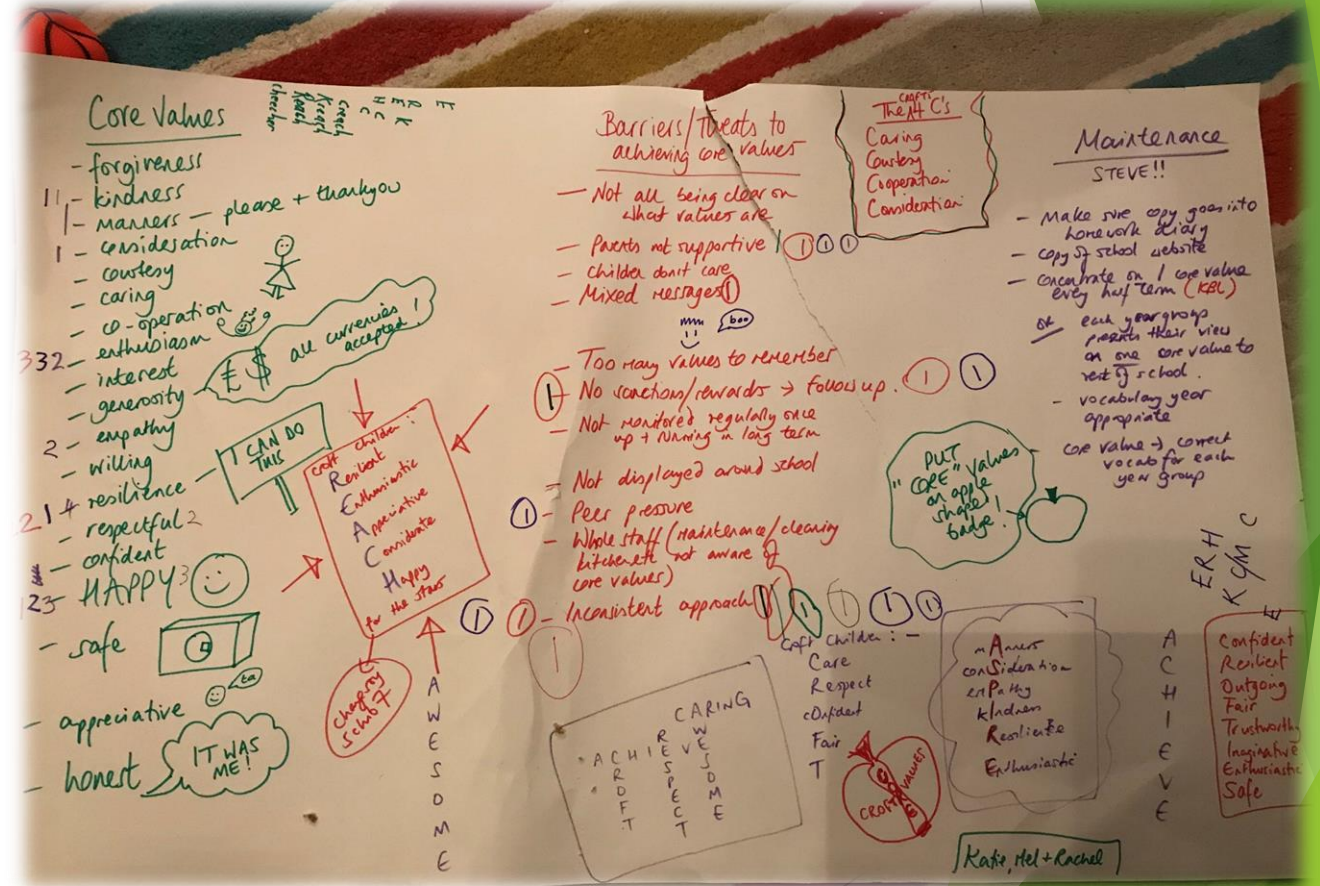 Core Values
- forgiveness
11 - kindness
1 - manners - please + thankyou
1 - consideration
- courtesy
- caring
- co-operation
332 - enthusiasm
- interest
- generosity
£ $ all currencies
accepted!
2 - empathy
- willing
214 - resilience
I CAN DO
THIS
- respectful 2
- confident
123 - HAPPY 3
- safe
- appreciative
ta
- honest
IT WAS
ME!
Creach
Kreach
Reach
cheecher
H C
E C
R E
K
E
Croft children :
Resilient
Enthusiastic
Appreciative
Considerate
Happy
for the stars
A
W
E
S
O
M
E
Barriers/Threats to
achieving core values
- Not all being clear on
what values are
- Parents not supportive 1 1 1 1
- Children don't care
- Mixed messages 1
mm
boo
- Too many values to remember
1 - No sanctions/rewards → follow up. 1 1
- Not monitored regularly once
up + running in long term
- Not displayed around school
1 - Peer pressure
- Whole staff (maintenance/cleaning
kitchen etc not aware of
core values)
1 1 - Inconsistent approach 1 1 1 1 1
1
CRAFTS
The 4 C's
Caring
Courtesy
Cooperation
Consideration
Maintenance
STEVE!!
- Make sure copy goes into
homework diary
- copy of school website
- concentrate on 1 core value
every half term (KBL)
or each year group
presents their view
on one core value to
rest of school.
- vocabulary year
appropriate
core value → correct
vocab for each
year group
PUT
"CORE" values
on apple
shape
badge!
CARING
ACHIEVE
CROFT
RESPECT
AWESOME
Croft Children : -
Care
Respect
cOnfident
Fair
T
CORE
CROFT VALUES
mAnners
conSideration
emPathy
kIndness
Resilience
Enthusiastic
A
C
H
I
E
V
E
ERH
K C/M C
E
Confident
Resilient
Outgoing
Fair
Trustworthy
Imaginative
Enthusiastic
Safe
Katie, Mel + Rachel